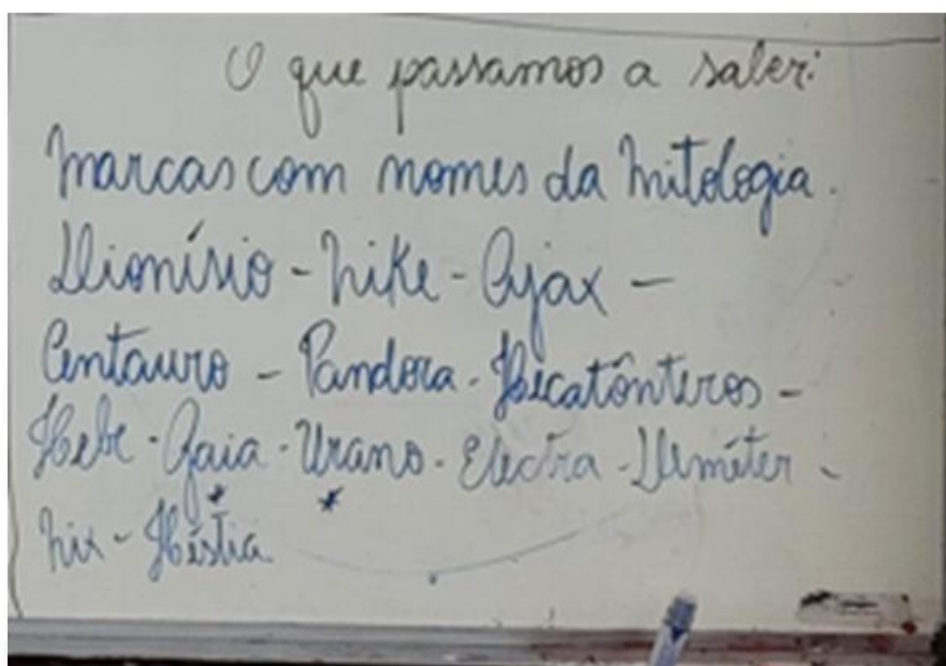 O que passamos a saber:
Marcas com nomes da Mitologia.
Dionísio - Nike - Ajax -
Centauro - Pandora - Hecatônteros -
Hebe - Gaia - Urano - Electra - Deméter -
* *
Nix - Héstia